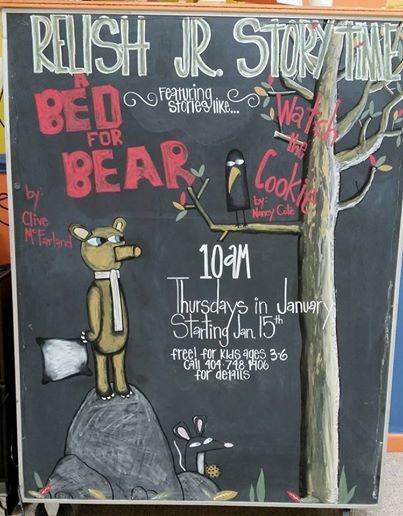 RELISH JR. STORYTIME
Featuring
stories like...
A
BED
FOR
BEAR
by
Clive
McFarland
Watch
the
Cookie
by:
Nancy Cote
10am
Thursdays in January
Starting Jan. 15th
free! for kids ages 3-6
call 404.748.1906
for details